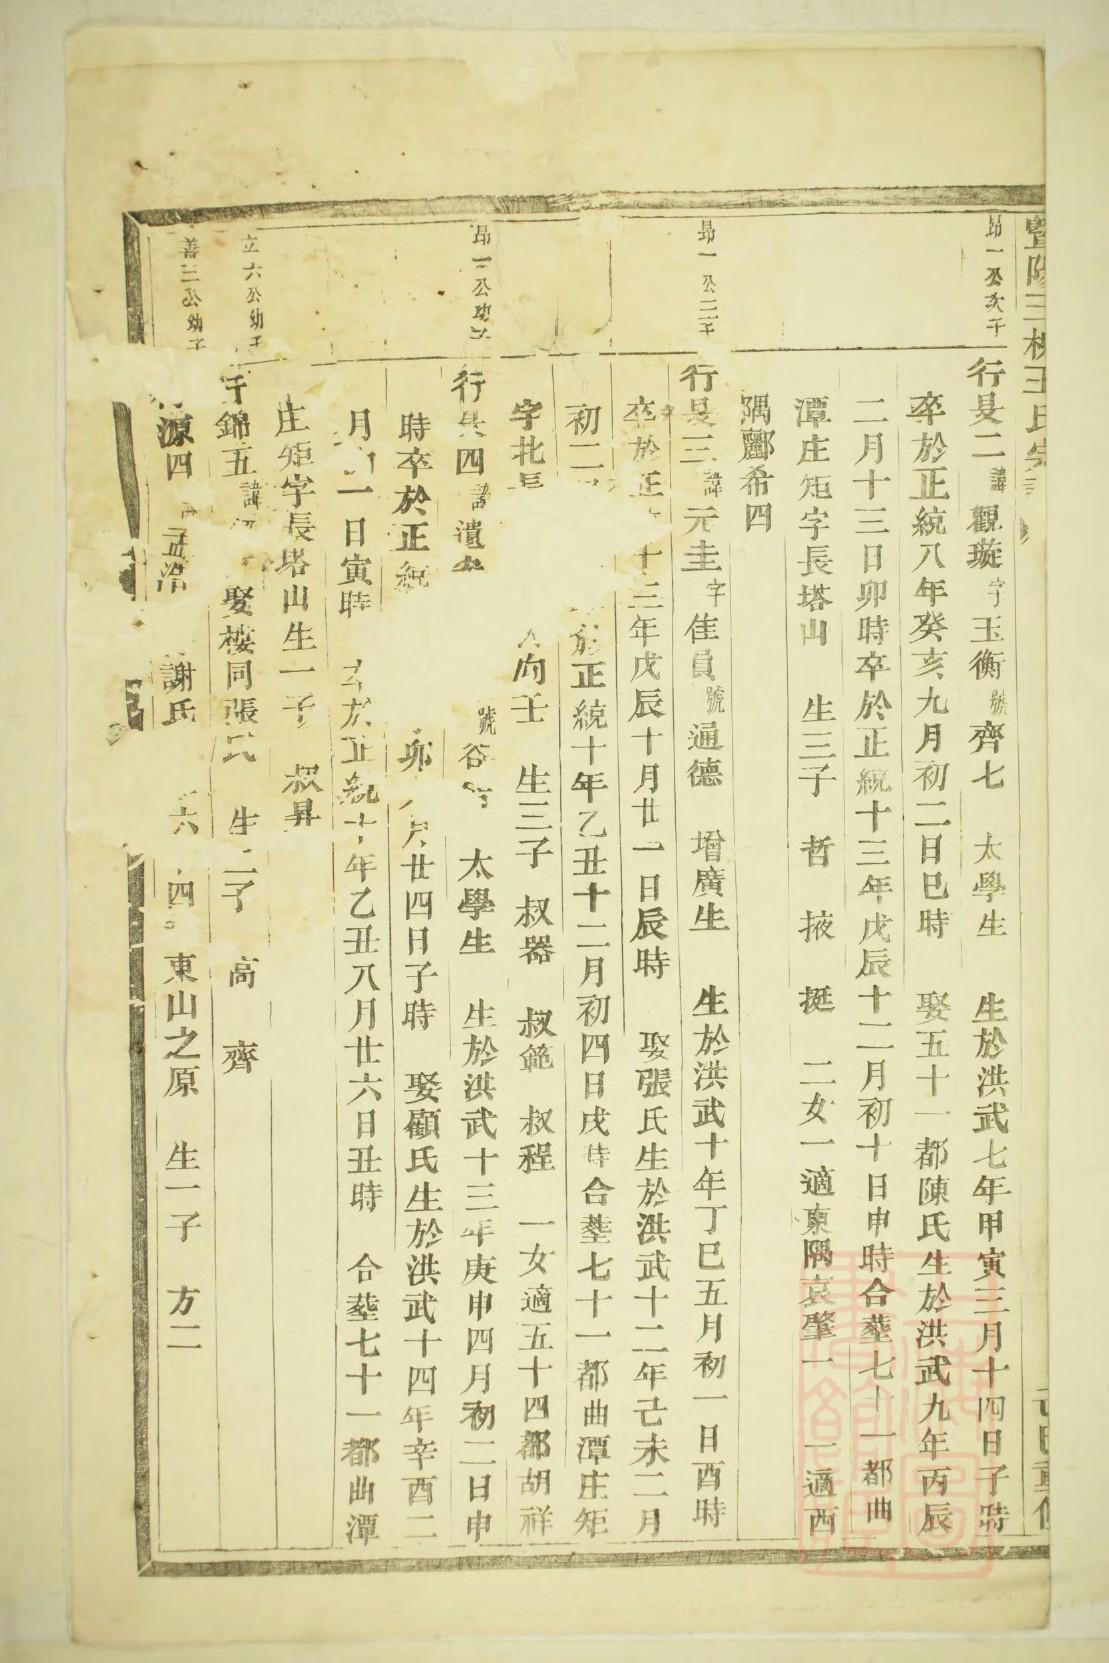 暨陽三桃王氏宗
昂一公次子
行旻二諱觀璇字玉衡號齊七 太學生 生於洪武七年甲寅三月十四日子時
卒於正統八年癸亥九月初二日巳時 娶五十一都陳氏生於洪武九年丙辰
二月十三日卯時卒於正統十三年戊辰十二月初十日申時合塟七十一都曲
潭庄矩字長塔山 生三子 哲 掖 挺 二女一適東隅袁肇一 一適西
隅酈希四
昂一公三子
行旻三諱元圭字佳員號通德 增廣生 生於洪武十年丁巳五月初一日酉時
卒於正 十三年戊辰十月廿一日辰時 娶張氏生於洪武十二年己未二月
初二 於正統十年乙丑十二月初四日戌時合塟七十一都曲潭庄矩
字北 向壬 生三子 叔器 叔範 叔程 一女適五十四都胡祥
昂一公幼子
行旻四諱 號谷 太學生 生於洪武十三年庚申四月初二日申
時卒於正統 卯 月廿四日子時 娶顧氏生於洪武十四年辛酉二
月 一日寅時 卒於正統十年乙丑八月廿六日丑時 合塟七十一都曲潭
庄矩字長塔山生一子 叔昇
立六公幼子
行錦五諱 娶樓同張氏 生二子 高 齊
善三公幼子
源四 謝氏 六 四 東山之原 生一子 方二